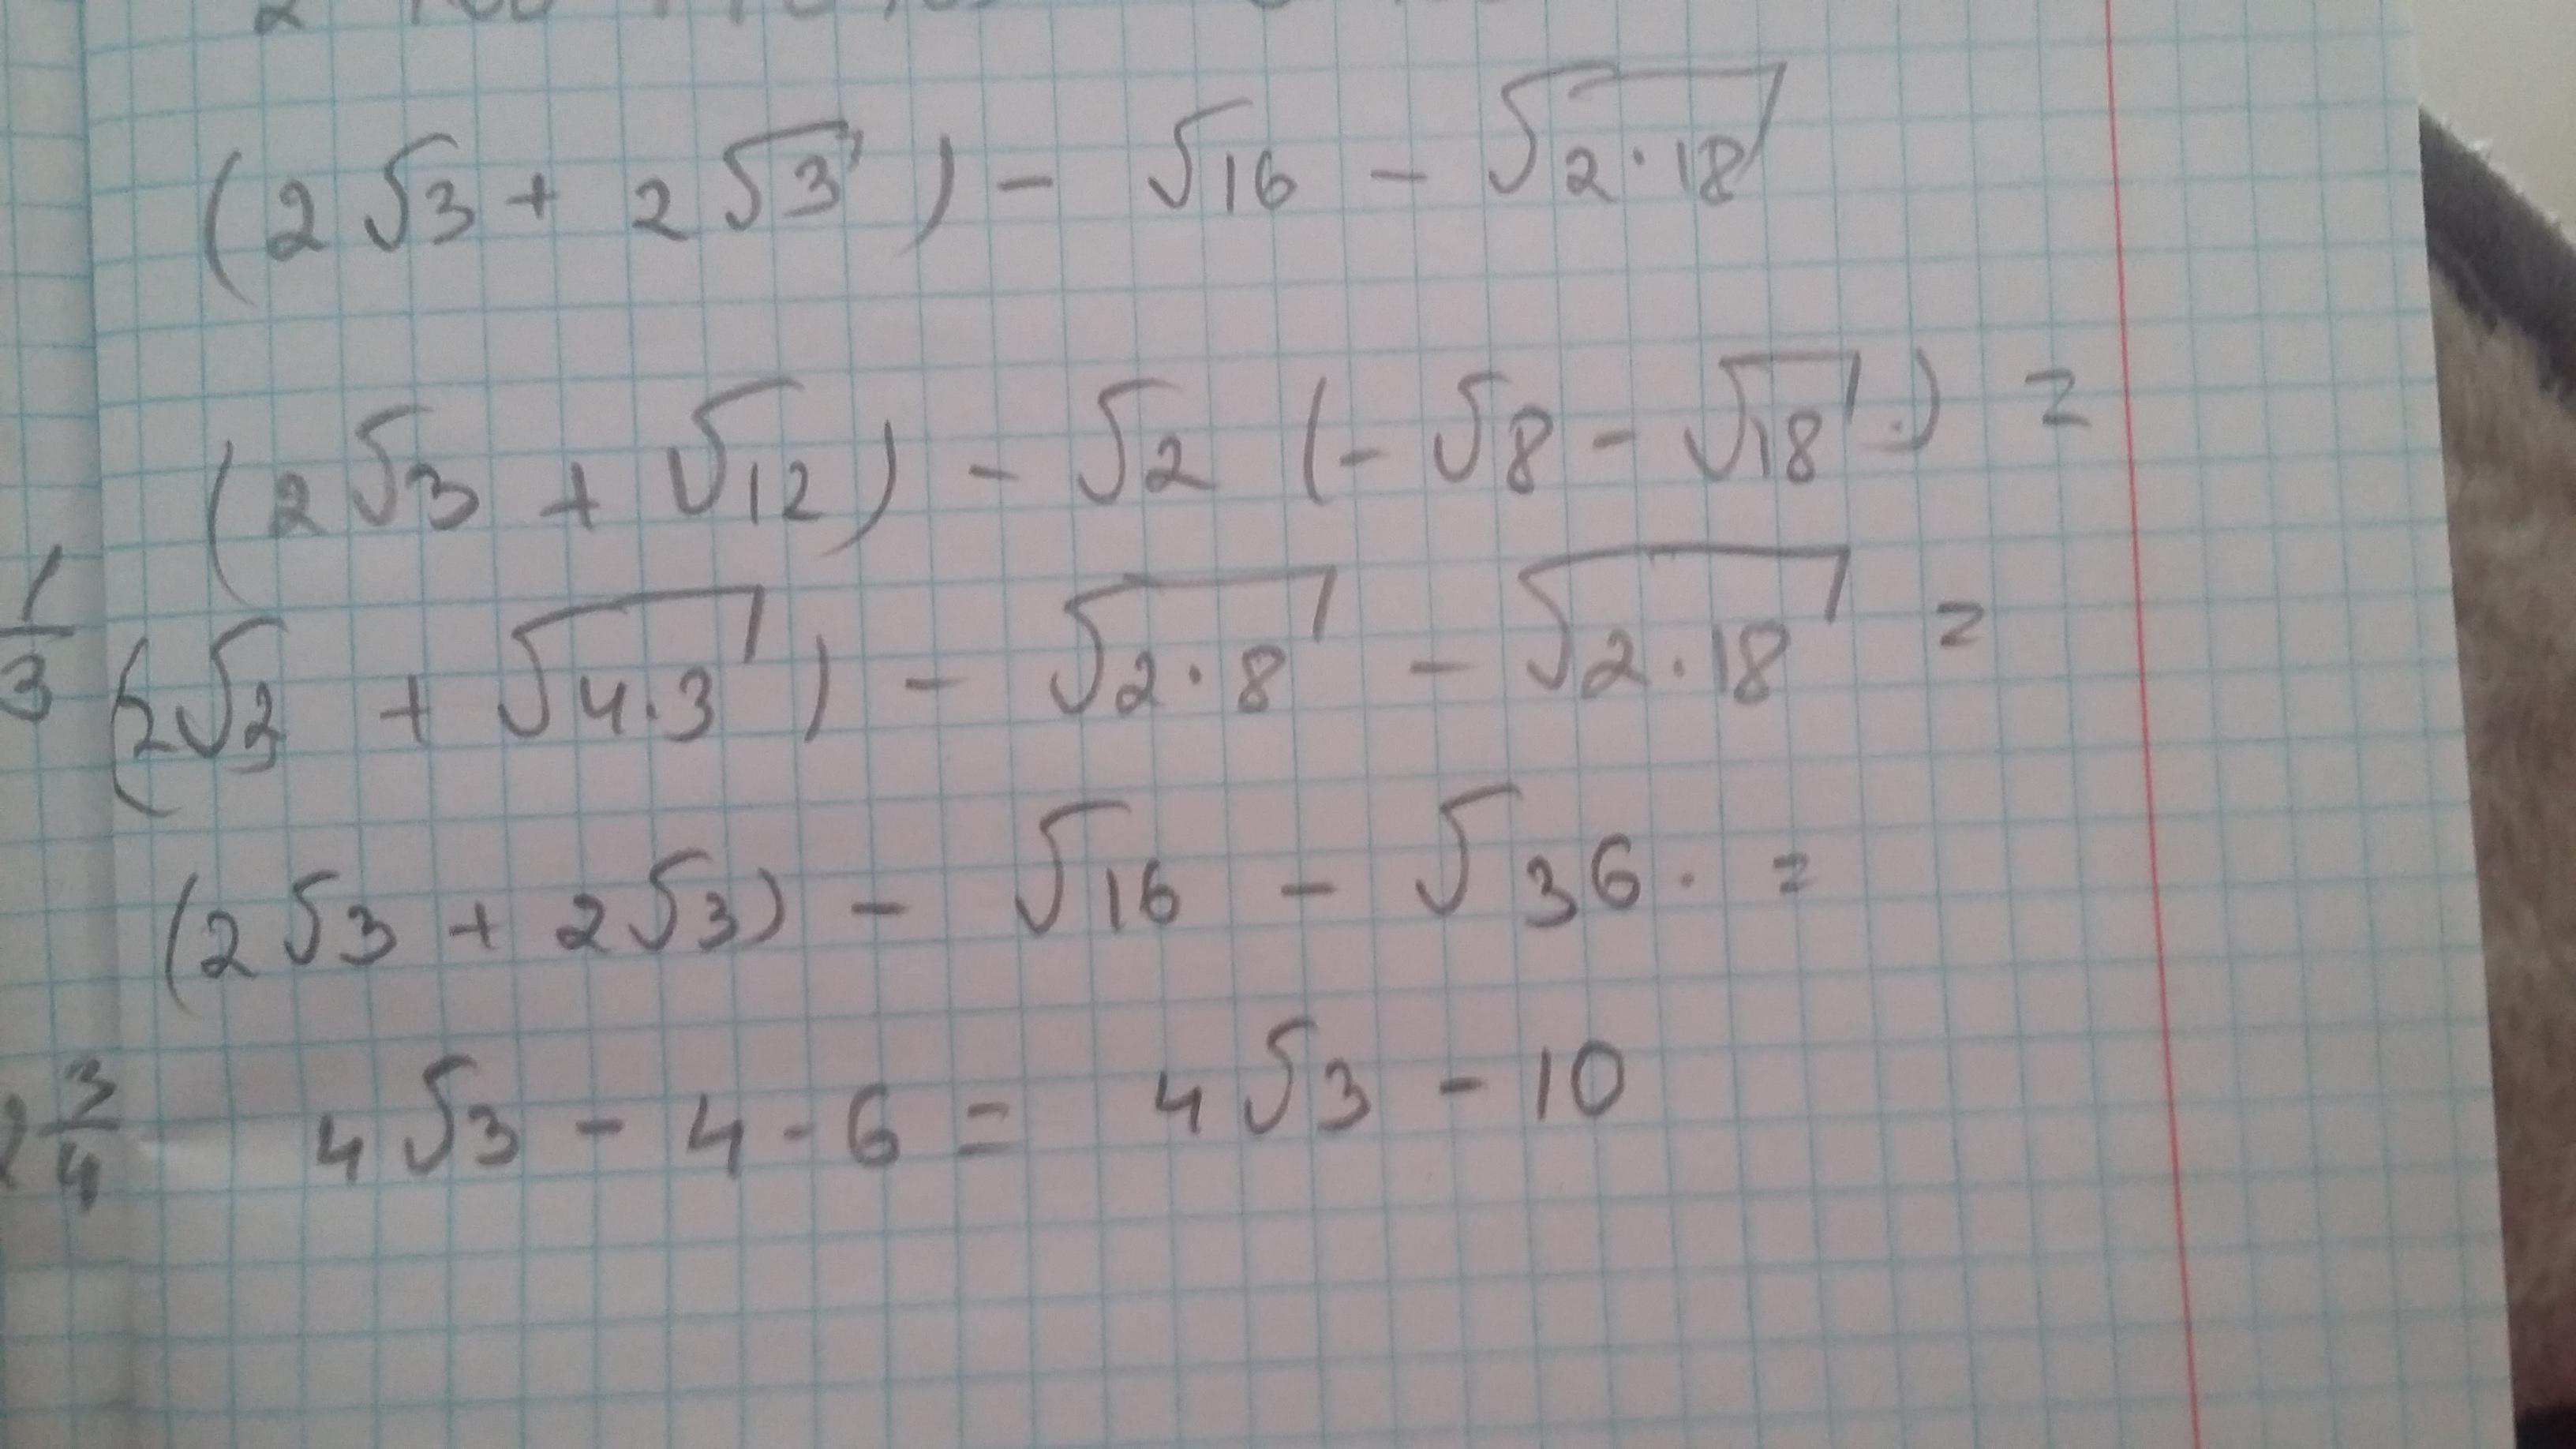 (2√3 + 2√3) - √16 - √2·18
(2√3 + √12) - √2 (-√8 - √18.) =
1/3
(2√3 + √4.3) - √2·8 - √2.18 =
(2√3 + 2√3) - √16 - √36. =
3/4
4√3 - 4 - 6 = 4√3 - 10